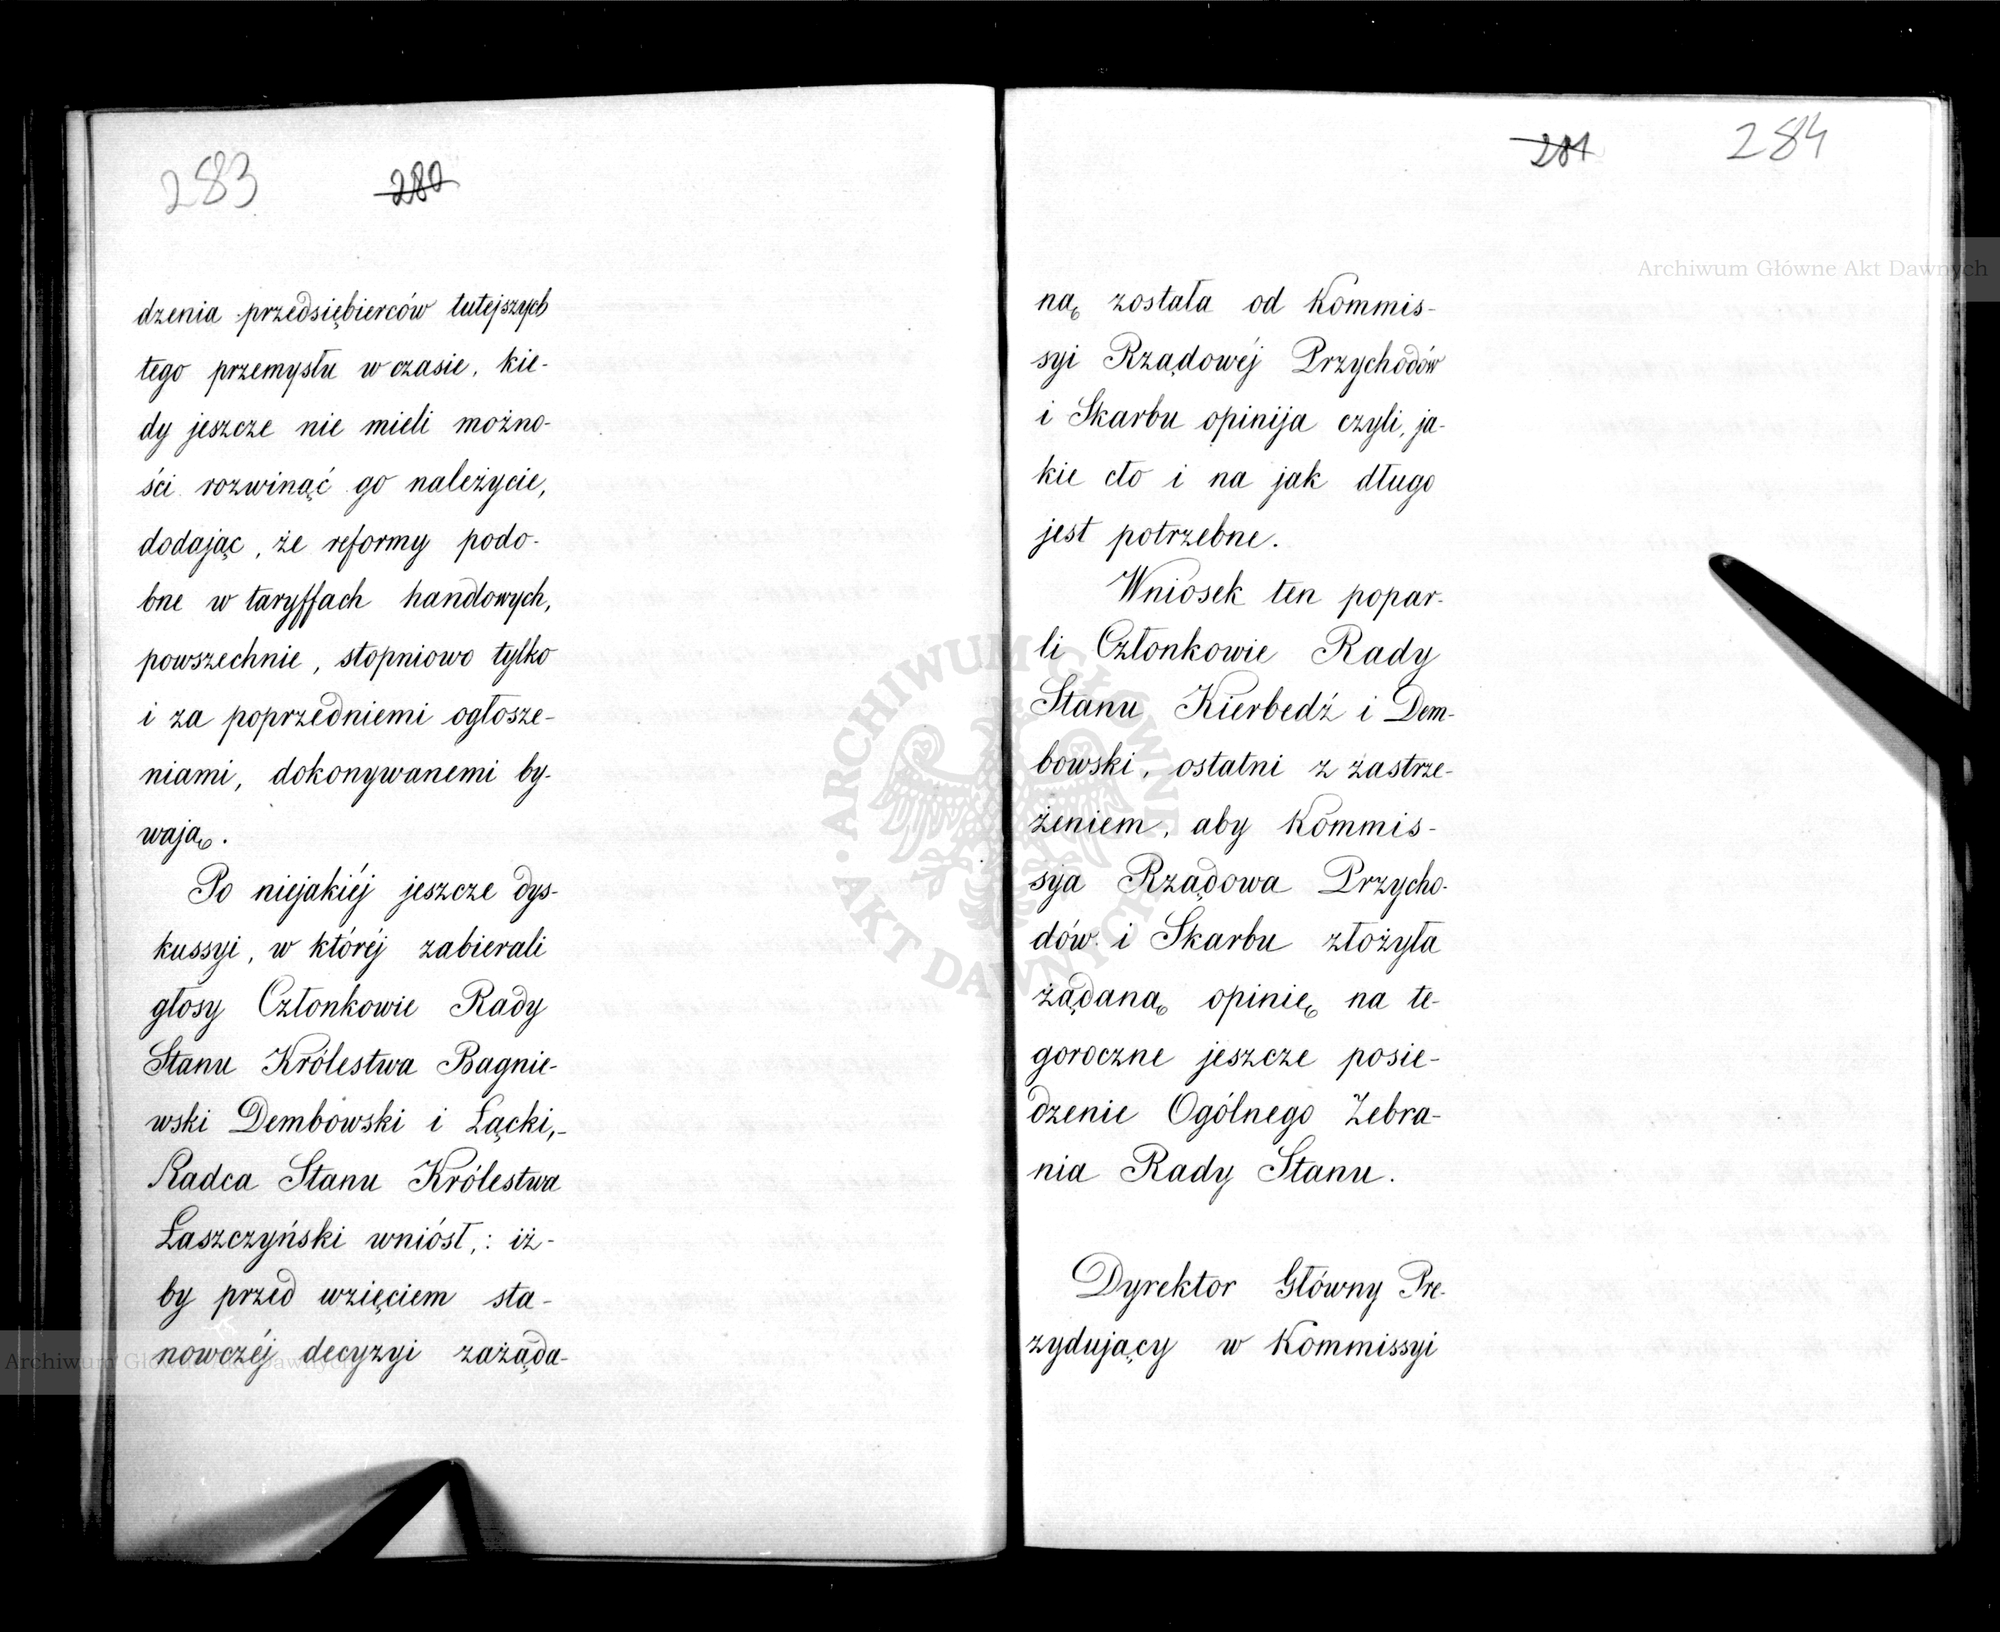 283 280
dzenia przedsiębierców tutejszych
tego przemysłu w czasie, kie-
dy jeszcze nie mieli możno-
ści rozwinąć go należycie,
dodając, że reformy podo-
bne w taryffach handlowych,
powszechnie, stopniowo tylko
i za poprzedniemi ogłosze-
niami, dokonywanemi by-
wają.
Po niejakiéj jeszcze dys-
kussyi, w któréj zabierali
głosy Członkowie Rady
Stanu Królestwa Bagnie-
wski Dembowski i Łącki,-
Radca Stanu Królestwa
Łaszczyński wniósł,: iż-
by przed wzięciem sta-
nowczéj decyzyi zażąda-
281 284
ną została od Kommis-
syi Rządowéj Przychodów
i Skarbu opinija czyli, ja-
kie cło i na jak długo
jest potrzebne.
Wniosek ten popar-
li Członkowie Rady
Stanu Kierbedź i Dem-
bowski, ostatni z zastrze-
żeniem, aby Kommis-
syja Rządowa Przycho-
dów i Skarbu złożyła
żądaną opinię na te-
goroczne jeszcze posie-
dzenie Ogólnego Zebra-
nia Rady Stanu.
Dyrektor Główny Pre-
zydujący w Kommissyi
Archiwum Główne Akt Dawnych
ARCHIWUM GŁÓWNE AKT DAWNYCH
Archiwum Główne Akt Dawnych